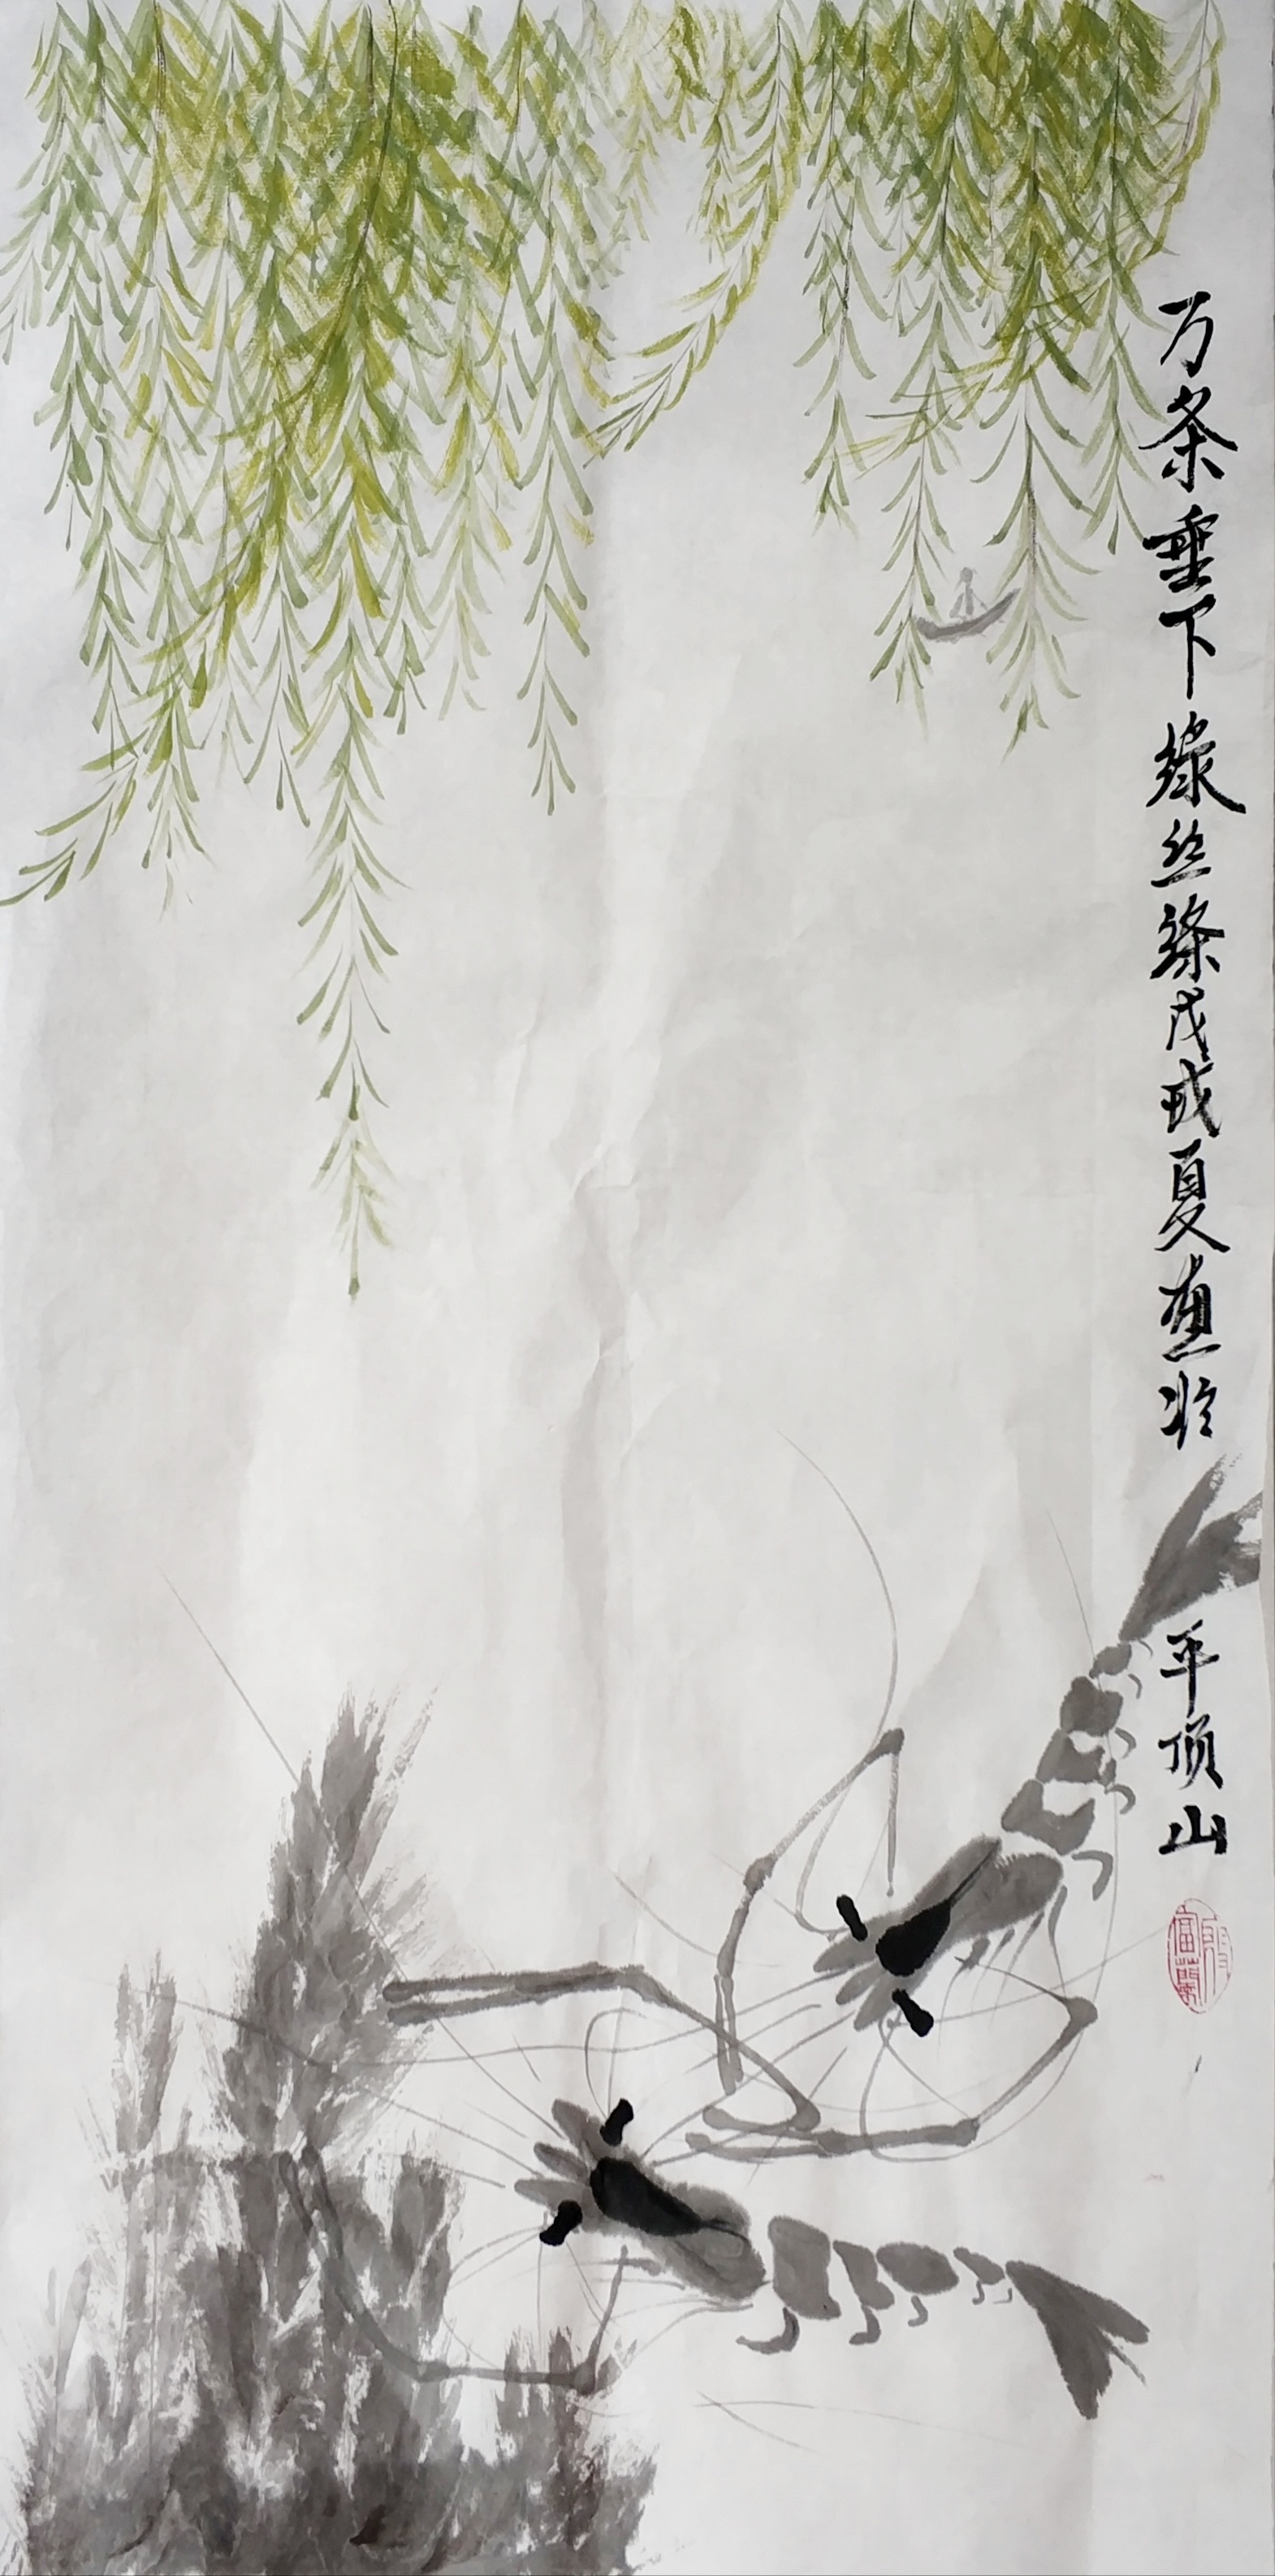 万条垂下绿丝绦戊戌夏画于
平顶山
殷富荣